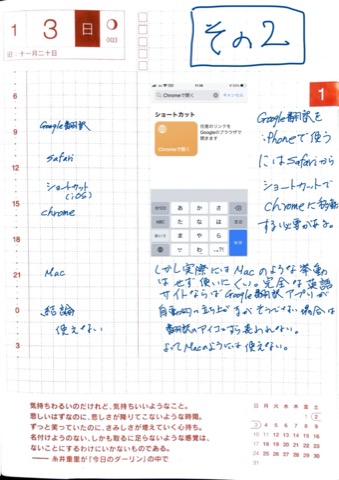 1 3 日
003
旧:十一月二十日
その2
1
6
9
12
15
18
21
0
3
Google翻訳
Safari
ショートカット
(iOS)
chrome
Mac
結論
使えない
Chromeで開く
キャンセル
ショートカット
Chromeで開く
任意のリンクを
Googleのブラウザで
開きます
あ か さ
ABC た な は
ま や ら
わ 、。?!
Google翻訳を
iPhoneで使う
にはSafariから
ショートカットで
Chromeに移動
する必要がある。
しかし実際にはMacのような挙動
はせず使いにくい。完全な英語
サイトならばGoogle翻訳アプリが
自動的に立ち上がるがそうでない場合は
翻訳のアイコンすら表われない。
よってMacのようには使えない。
気持ちわるいのだけれど、気持ちいいようなこと。
悲しいはずなのに、悲しさが降りてこないような時間。
ずっと笑っていたのに、さみしさが増えていく心持ち。
名付けようのない、しかも取るに足らないような感覚は、
ないことにするわけにいかないものである。
—— 糸井重里が『今日のダーリン』の中で
日 月 火 水 木 金 土
1 2
3 4 5 6 7 8 9
10 11 12 13 14 15 16
17 18 19 20 21 22 23
24 25 26 27 28 29 30
31